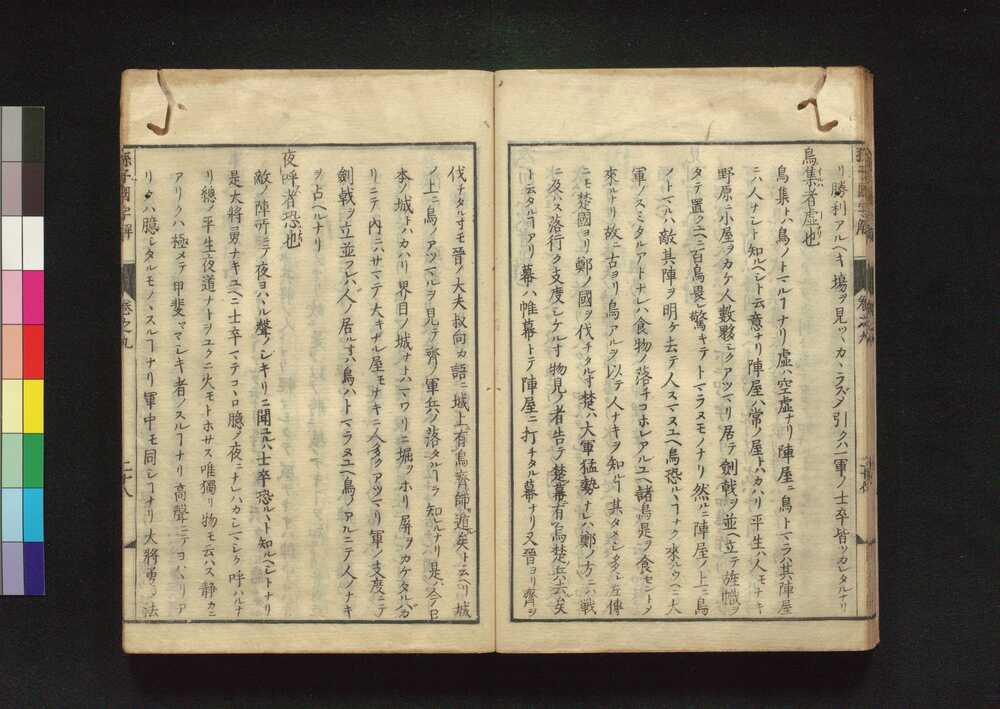 リ勝利アルヘキ塲ヲ見ツヽカヽラズ〆引クハ一軍ノ士卒皆ツカレタルナリ
鳥集者虚也
鳥集トハ鳥ノトマルヿナリ虚ハ空虚ナリ陣屋ニ鳥トマラハ其陣屋
ニハ人ナシト知ルヘシト云意ナリ陣屋ハ常ノ屋トハカハリ平生ハ人モナキ
野原ニ小屋ヲカケ人數夥シクアツマリ居テ劍戟ヲ並ヘ立テ旌幟ヲ
タテ置クユヘニ百鳥畏レ驚キテトマラヌモノナリ然ルニ陣屋ノ上ニ鳥
ノトマルハ敵其陣ヲ明ケ去テ人スマヌユヘ鳥恐ルヽヿナク來ルウヘニ大
軍ノスミタルアトナレハ食物ノ落チコホレアルユヘ諸鳥是ヲ食セントテ
來ルナリ故ニ古ヨリ鳥アルヲ以テ人ナキヲ知ルヿ其タメシ多シ左傳
ニモ楚國ヨリ鄭ノ國ヲ伐チタル寸楚ハ大軍猛勢ナレハ鄭ノ方ニハ戰
ニ及ハス落行ク支度シケル寸物見ノ者告テ楚幕有烏楚兵去矣
ト云タルヿアリ幕ハ帷幕トテ陣屋ニ打チタル幕ナリ又晉ヨリ齊ヲ
伐チタル寸モ晉ノ大夫叔向カ語ニ城上有烏齊師遁矣ト云ヘリ城
ノ上ニ鳥ノアツマルヲ見テ齊ノ軍兵ノ落タルヿヲ知ルナリ是ハ今ノ日
本ノ城トハカハリ界目ノ城ナトハマワリニ堀ヲホリ屏ヲカケタルハカ
リニテ内ニハサマテ大キナル屋モナキニ人多クアツマリ軍ノ支度ニテ
劍戟ヲ立並フレハ人ノ居ル寸ハ鳥ハトマラヌユヘ鳥ノアルニテ人ノナキ
ヲ占ヘルナリ
夜呼者恐也
敵ノ陣所ニテ夜ヨハハル聲ノシキリニ聞ユルハ士卒恐ルヽト知ルヘシトナリ
是大將ノ勇ナキユヘニ士卒マテコヽロ臆シ夜ニナレハカシマシク呼ハルナ
リ總〆平生夜道ナトヲユクニ火モトホサス唯獨リ物モ云ハス静カニ
アリクハ極メテ甲斐〱シキ者ノスルヿナリ高聲ニテヨハヽリア
リクハ臆シタルモノヽスルヿナリ軍中モ同シヿナリ大將勇アレハ法
孫子國字解
卷之九
二十八